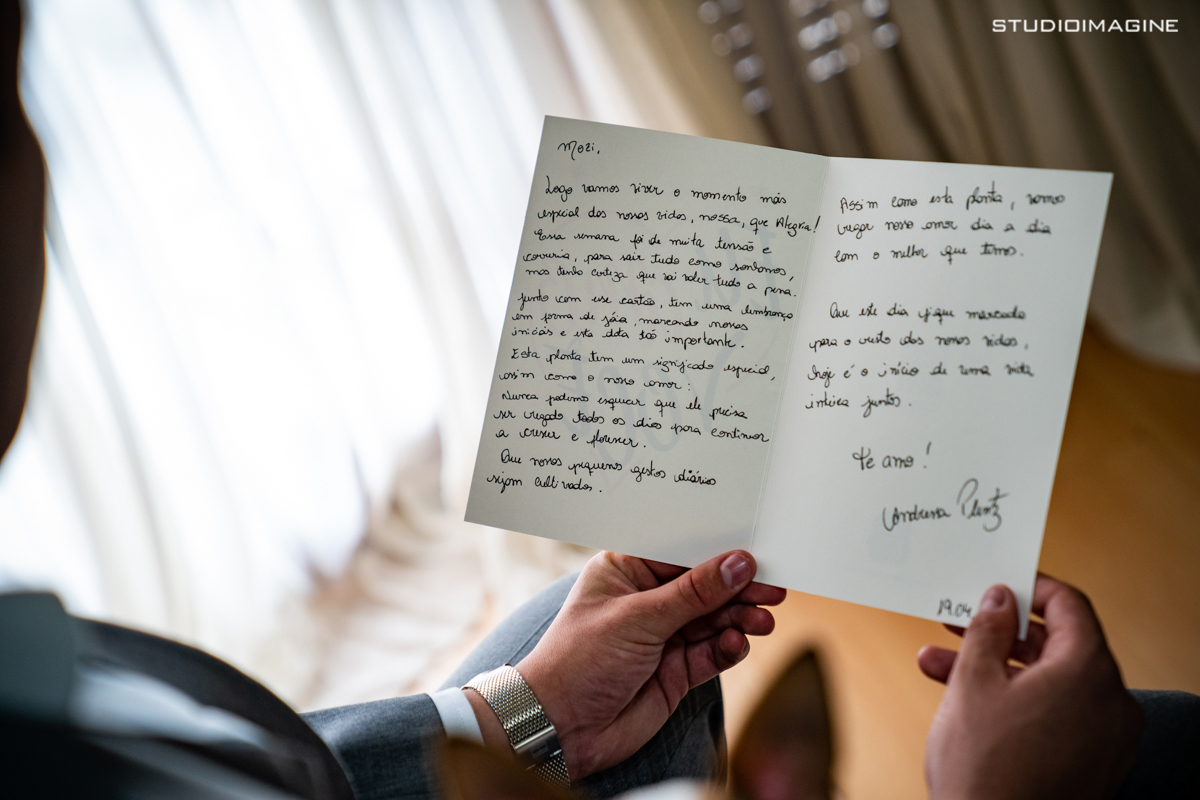 STUDIOIMAGINE
Mozi,
Logo vamos viver o momento mais
especial das nossas vidas, nossa, que Alegria!
Essa semana foi de muita tensão e
correria, para sair tudo como sonhamos,
mas tenho certeza que vai valer tudo a pena.
Junto com esse cartão, tem uma lembrança
em forma de jóia, marcando nossas
iniciais e esta data tão importante.
Esta planta tem um significado especial,
assim como o nosso amor:
Nunca podemos esquecer que ele precisa
ser regado todos os dias para continuar
a crescer e florescer.
Que nossos pequenos gestos diários
sejam cultivados.
Assim como esta planta, vamos
regar nosso amor dia a dia
com o melhor que temos.
Que este dia fique marcado
para o resto das nossas vidas,
hoje é o início de uma vida
inteira juntos.
Te amo!
Andressa
19.04